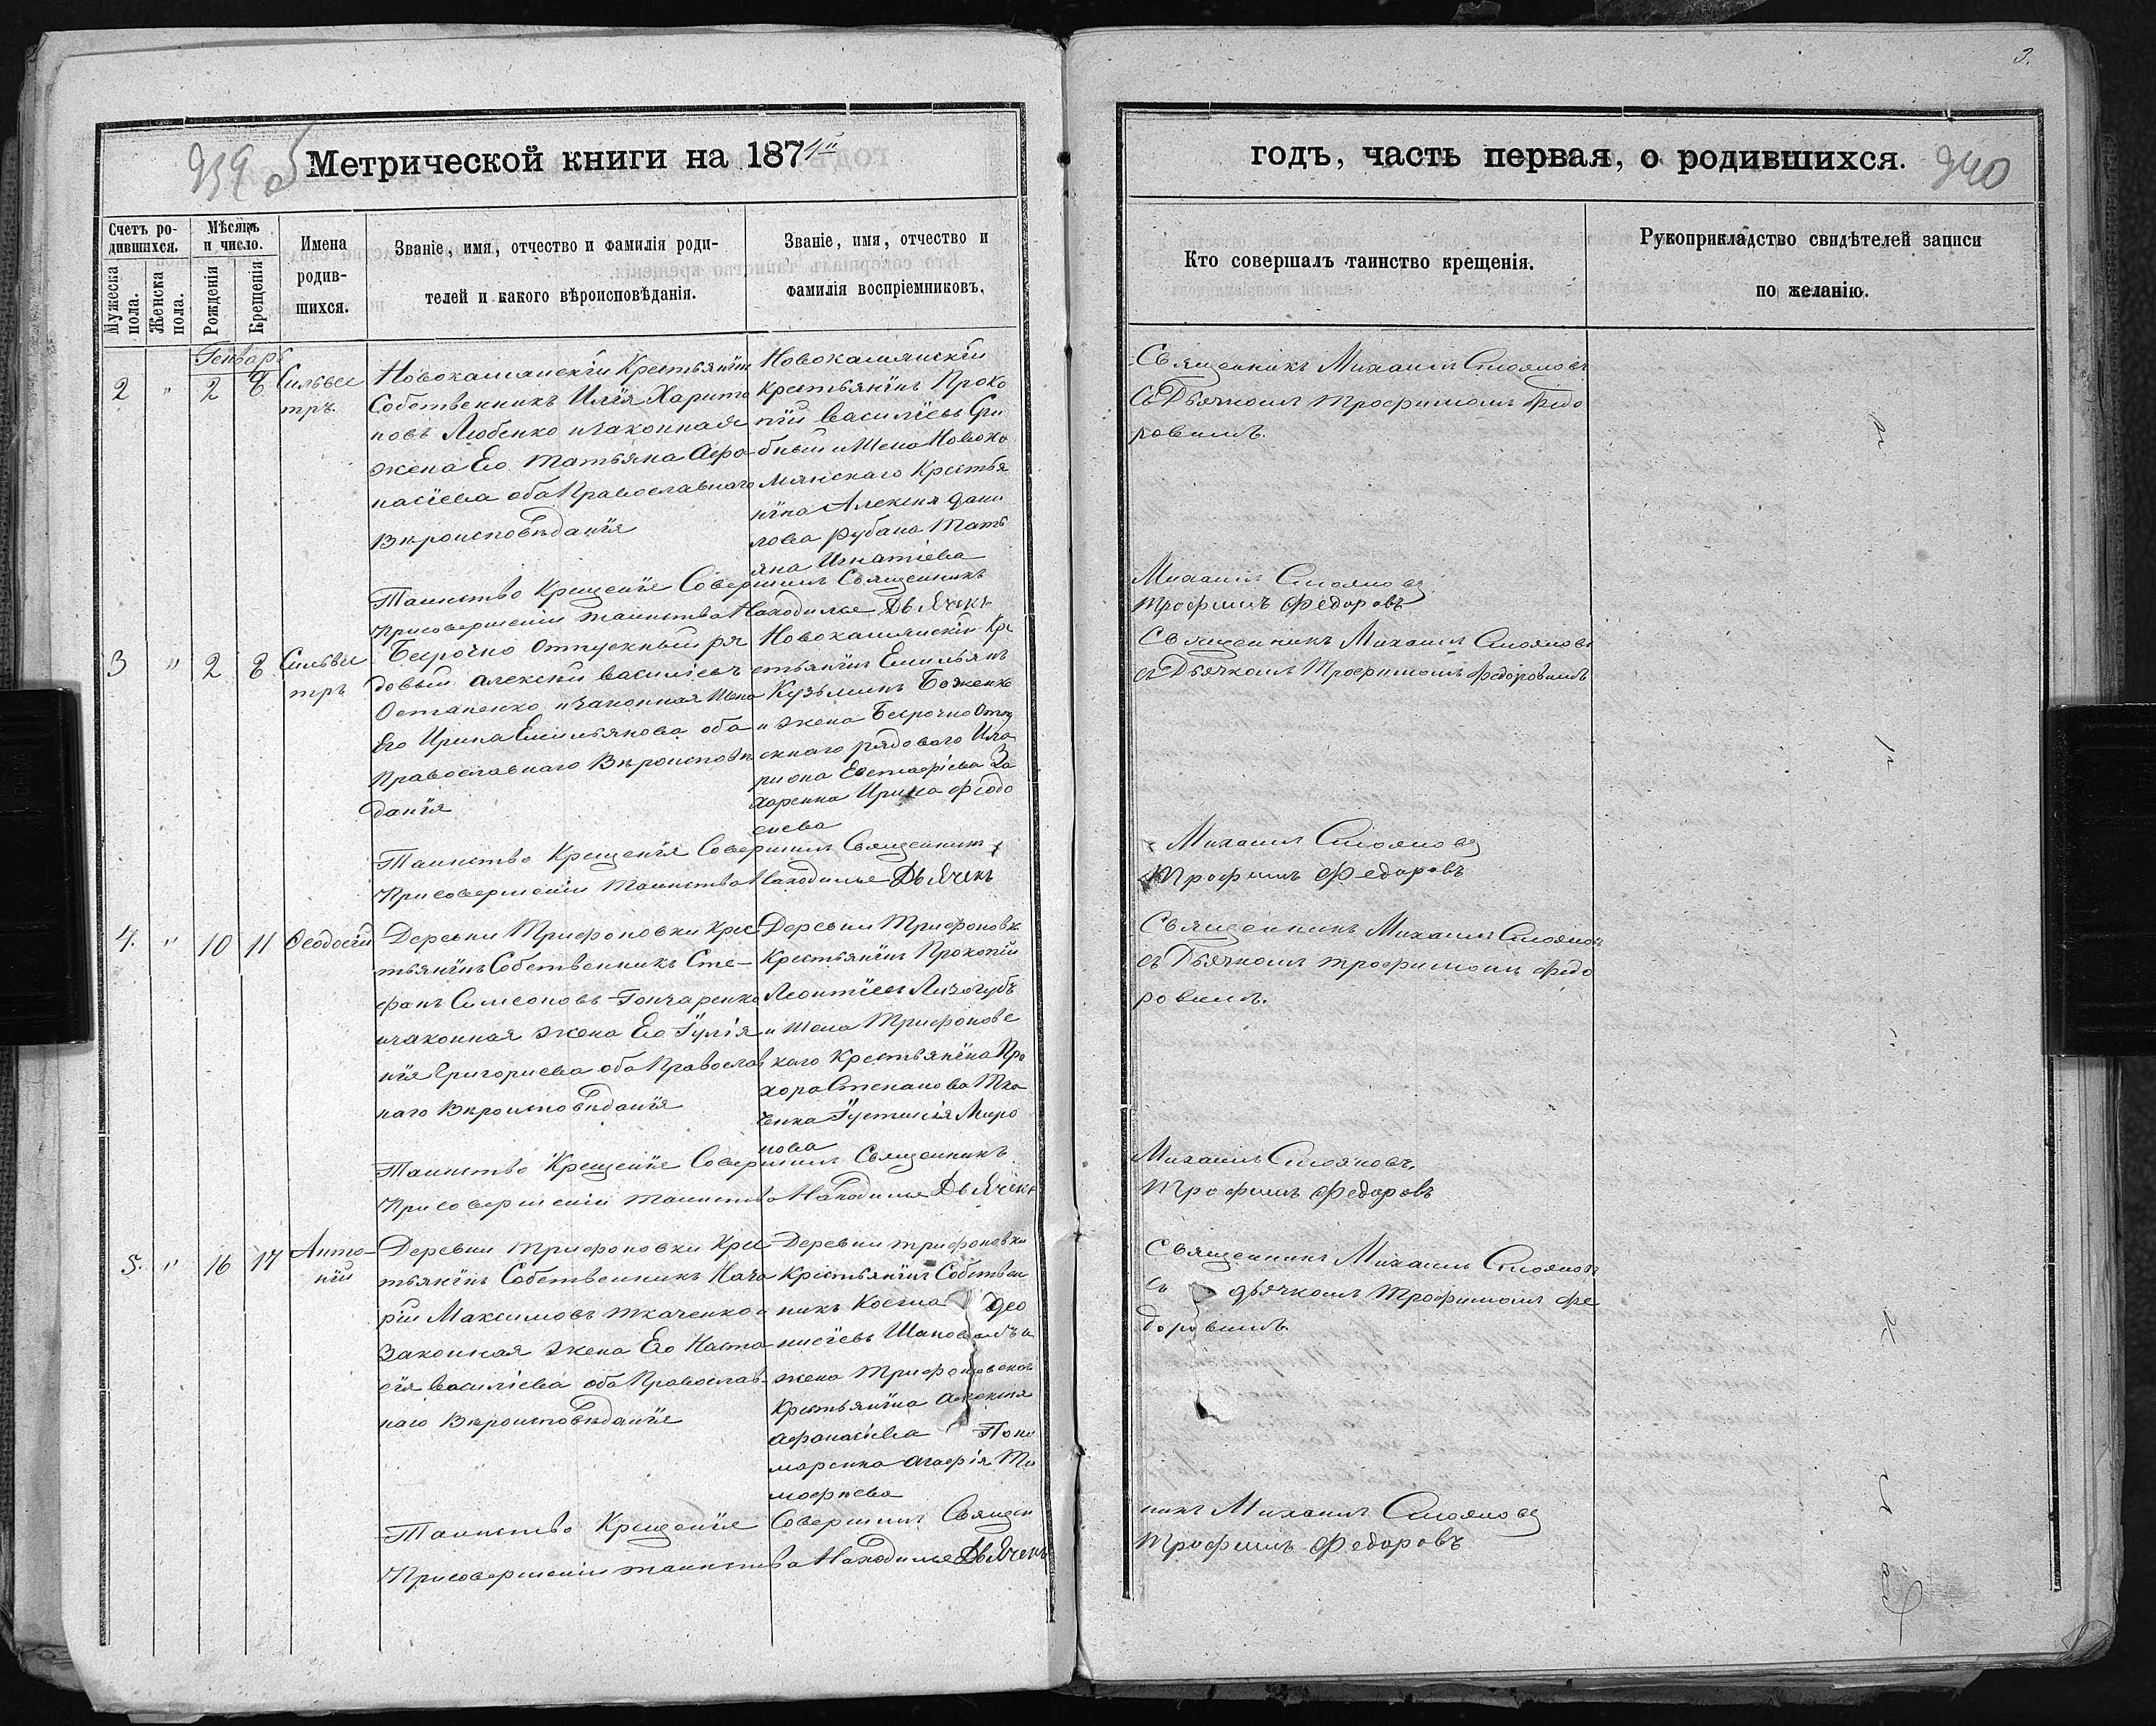 3.
939
5
Метрической книги на 1874й
годъ, часть первая, о родившихся.
940
Счетъ ро-
дившихся.
Мужеска
пола.
Женска
пола.
Мѣсяцъ
и число.
Рожденія
Крещенія
Имена
родив-
шихся.
Званіе, имя, отчество и фамилія роди-
телей и какого вѣроисповѣданія.
Званіе, имя, отчество и
фамилія воспріемниковъ.
Кто совершалъ таинство крещенія.
Рукоприкладство свидѣтелей записи
по желанію.
Генварь
2 " 2 8
Сильвес
тръ.
Новокамянскій Крестьянинъ
Собственникъ Илія Харито
новъ Любенко и законная
жена Его Татьяна Афа-
насіева оба Православнаго
Вѣроисповѣданія
Новокамянскій
крестьянинъ Проко
пій Василіевъ Гри
бный и Жена Новока
мянскаго Крестья
нина Алексія Дани
лова Рубана Тать
яна Игнатіева
Священникъ Михаилъ Стояновъ
Съ Дьячкомъ Трофимомъ Федо
ровымъ.
Таинство Крещенія Совершилъ Священникъ
Михаилъ Стояновъ
Присовершеніи таинства Находился Дьячекъ
Трофимъ Федоровъ
3 " 2 8
Сильвес
тръ
Безсрочно Отпускный ря
довый Алексій Василіевъ
Остапенко и законная Жена
Его Ирина Емильянова оба
Православнаго Вѣроисповѣ
данія
Новокамянскій Кре
стьянинъ Емильянъ
Кузьминъ Боженко
и жена Безсрочно Отпу
скнаго рядоваго Ила
риона Евстафіева За
харенка Ирина Феодо
сиева
Священникъ Михаилъ Стояновъ
съ Дьячкомъ Трофимомъ Федоровымъ
Таинство Крещенія Совершилъ Священникъ
Михаилъ Стояновъ
Присовершеніи Таинства Находился Дьячекъ
Трофимъ Федоровъ
4. " 10 11
Феодосій
Деревни Трифоновки Крес
тьянинъ Собственникъ Сте-
фанъ Симеоновъ Гончаренко
и законная жена Его Іулія
нія Григориева оба Православ
наго Вѣроисповѣданія
Деревни Трифоновки
Крестьянинъ Прокопій
Леонтіевъ Лизогубъ
и Жена Трифоновс
каго Крестьянина Про
хора Степанова Тка
ченка Іустинія Миро
нова
Священникъ Михаилъ Стояновъ
съ Дьячкомъ Трофимомъ Федо
ровымъ.
Таинство Крещенія Совершилъ Священникъ
Михаилъ Стояновъ.
Присовершеніи таинства Находился Дьячекъ
Трофимъ Федоровъ
5. " 16 17
Анто-
ній
Деревни Трифоновки Крес
тьянинъ Собственникъ Наза
рій Максимовъ Ткаченко и
Законная жена Его Наста
сія Василіева оба Православ-
наго Вѣроисповѣданія
Деревни Трифоновки
Крестьянинъ Собствен
никъ Косма Део
нисіевъ Шаповалъ и
жена Трифоновскаго
Крестьянина Алексія
Афанасіева Поно
маренка Агафія Ти
мофиева
Священникъ Михаилъ Стояновъ
съ дьячкомъ Трофимомъ Фе
доровымъ.
Таинство Крещенія Совершилъ Священ
никъ Михаилъ Стояновъ
Присовершеніи таинства Находился Дьячекъ
Трофимъ Федоровъ